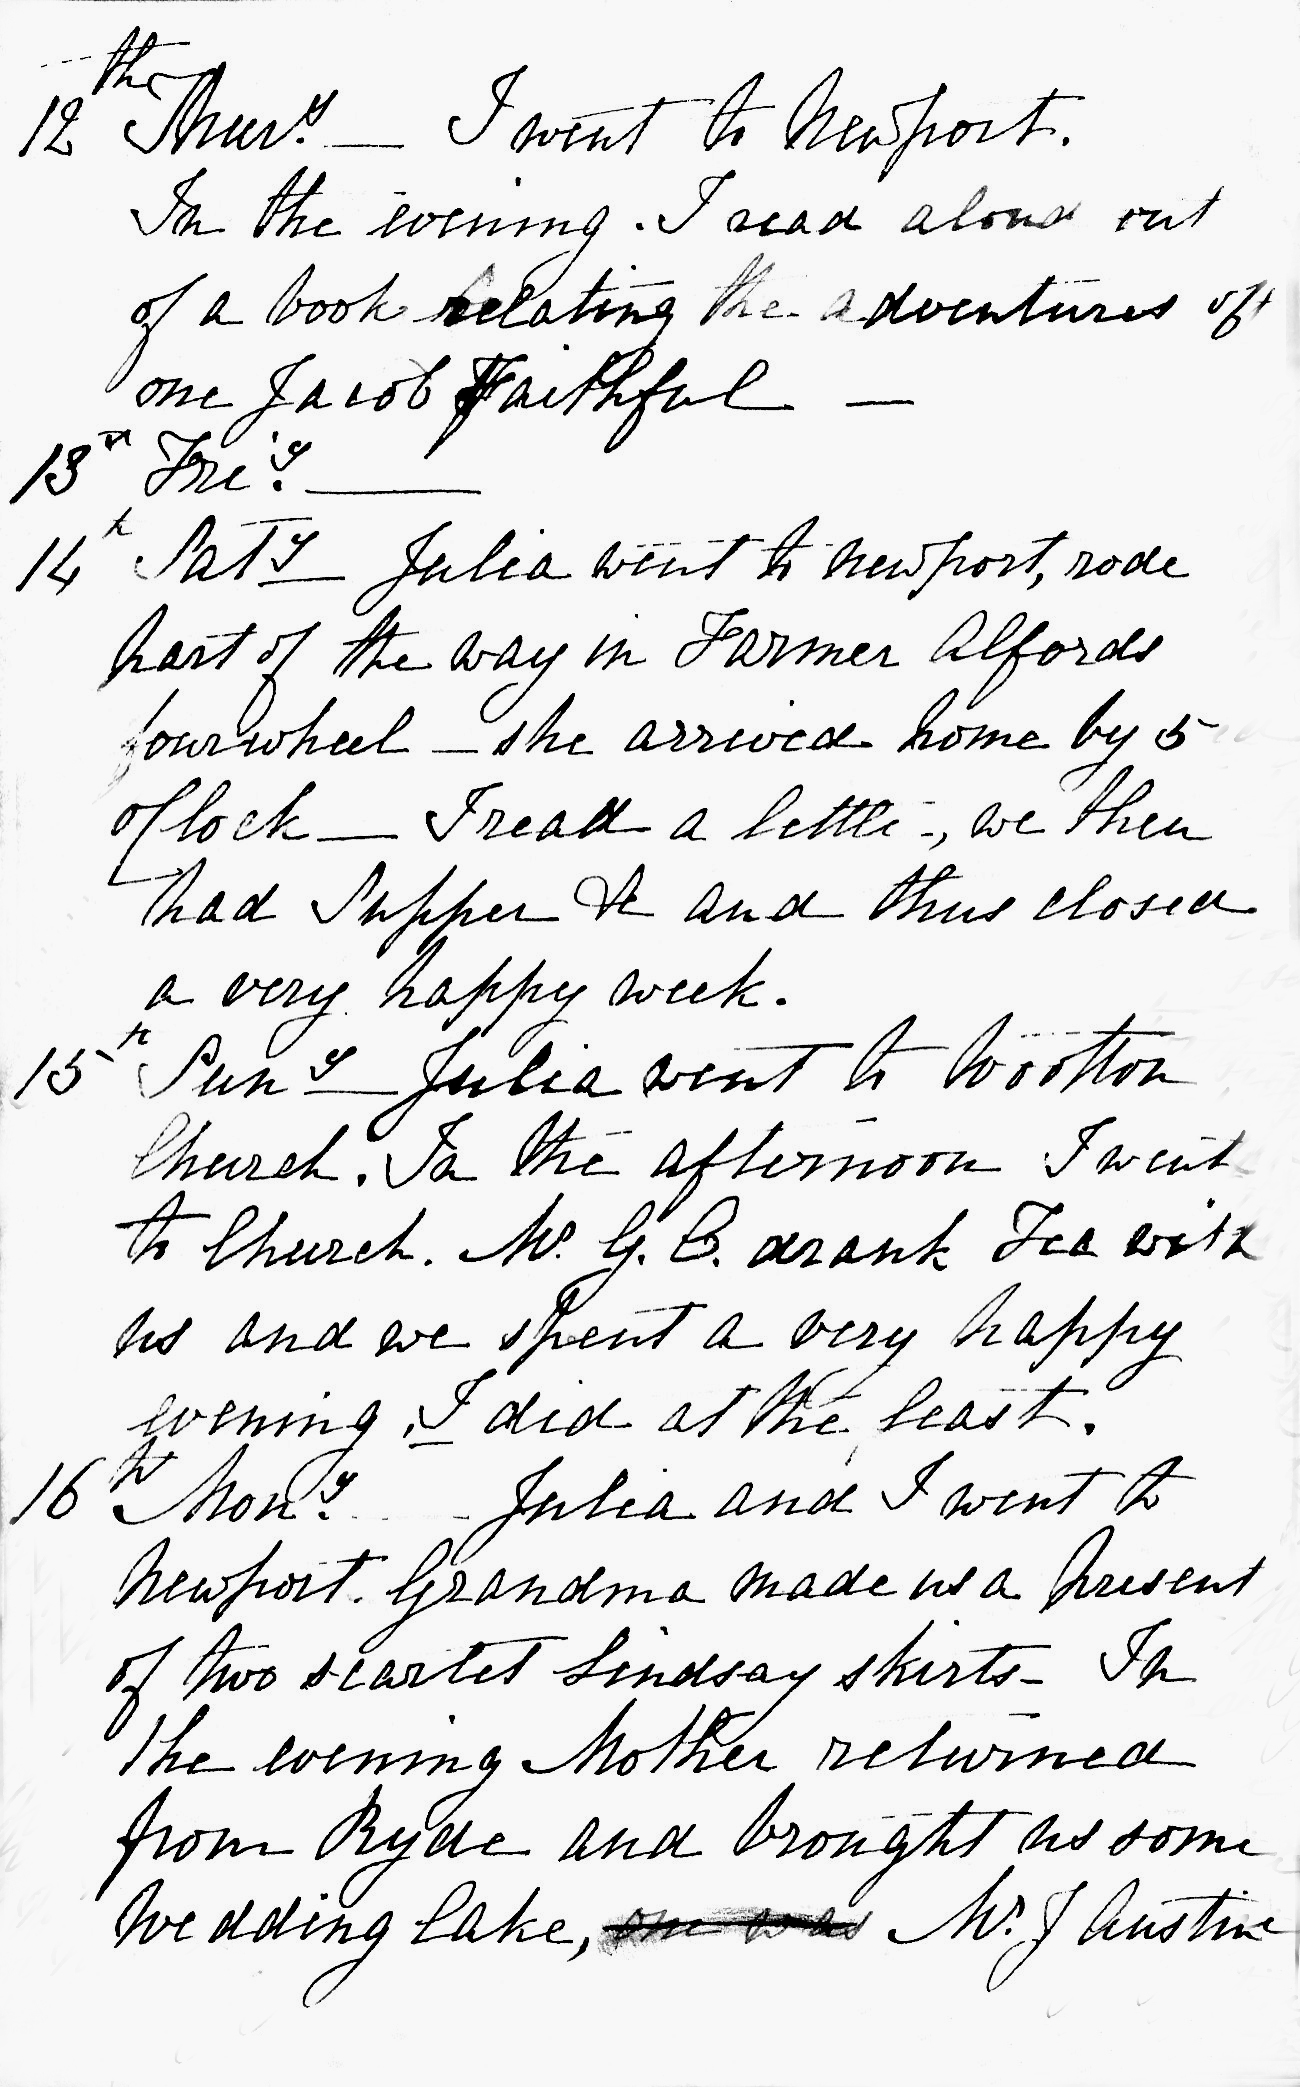 12th Thurs.y — I went to Newport.
In the evening. I read aloud out
of a book relating the adventures of
one Jacob Faithful —
13th Fri.y ——
14th Sat.y — Julia went to Newport, rode
part of the way in Farmer Alfords
fourwheel — she arrived home by 5
o'Clock — I read a little -, we then
had Supper &c and thus closed
a very happy week.
15th Sun.y — Julia went to Wootton
Church. In the afternoon I went
to Church. Mr. G. C. drank Tea with
us and we spent a very happy
evening, I did at the least.
16th Mon.y Julia and I went to
Newport. Grandma made us a present
of two scarlet Lindsay skirts - In
the evening Mother returned
from Ryde and brought us some
Wedding Cake, one was Mr. J Austins